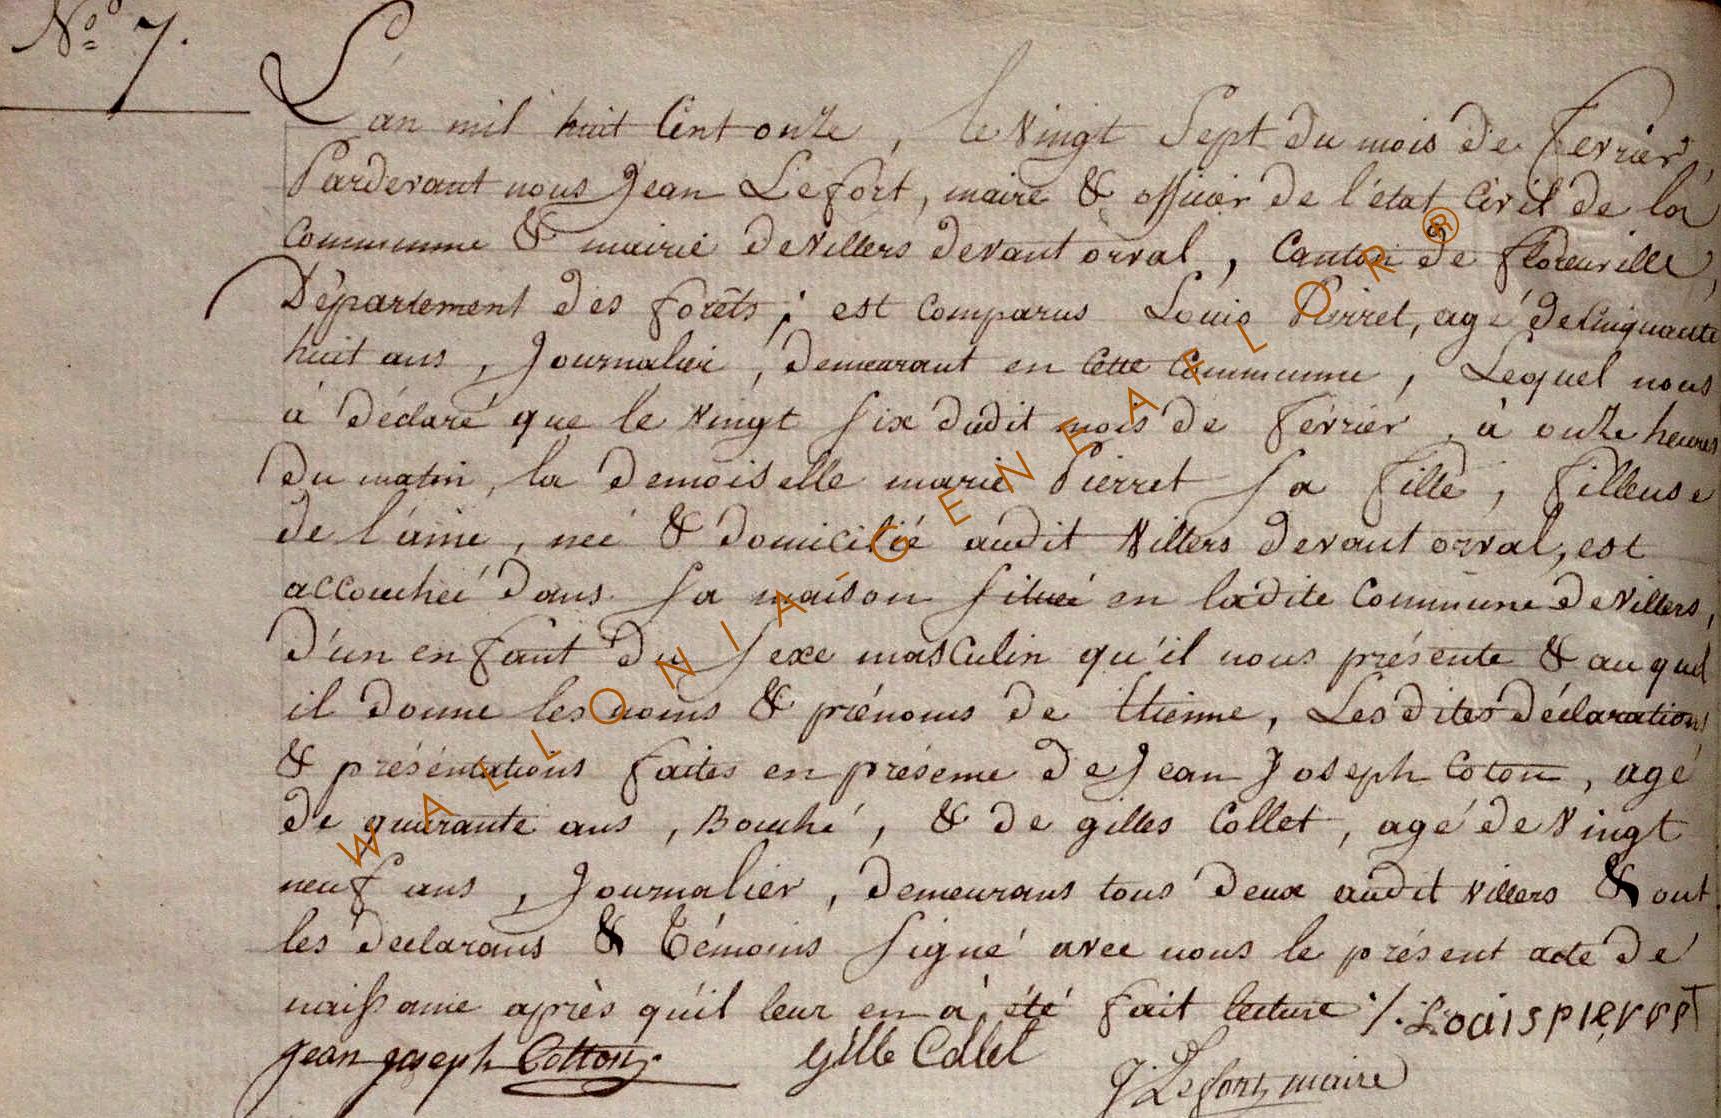 N.º 7.
L'an mil huit Cent onze, le Vingt Sept du mois de Fevrier,
Pardevant nous Jean Lefort, maire & officier de l'état Civil de la
Commune & mairie de Villers devant orval, Canton de florenville,
Département des forêts; est comparus Louis Pierret, agé de Cinquante
huit ans, Journalier, demeurant en cette Commune, Lequel nous
à déclaré que le Vingt Six dudit mois de Fevrier, à onze heures
du matin, la demoiselle marie Pierret sa fille, filleuse
de laine, neé & domicilié audit Villers devant orval, est
accouchée dans sa maison située en ladite Commune de Villers,
d'un enfant du sexe masculin qu'il nous présente & au quel
il donne les noms & prénoms de Etienne, Les dites déclarations
& présentations faites en présence de Jean Joseph Coton, agé
de quarante ans, Bouché, & de gilles Collet, agé de Vingt
neuf ans, Journalier, demeurans tous deux audit villers & ont
les déclarans & Témoins signé avec nous le présent acte de
naissance après qu'il leur en à été fait lecture ./. Louis pierret
jean joseph Cotton
gille Collet
J. Lefort, maire
WALLONIA-GENEAFLOR®